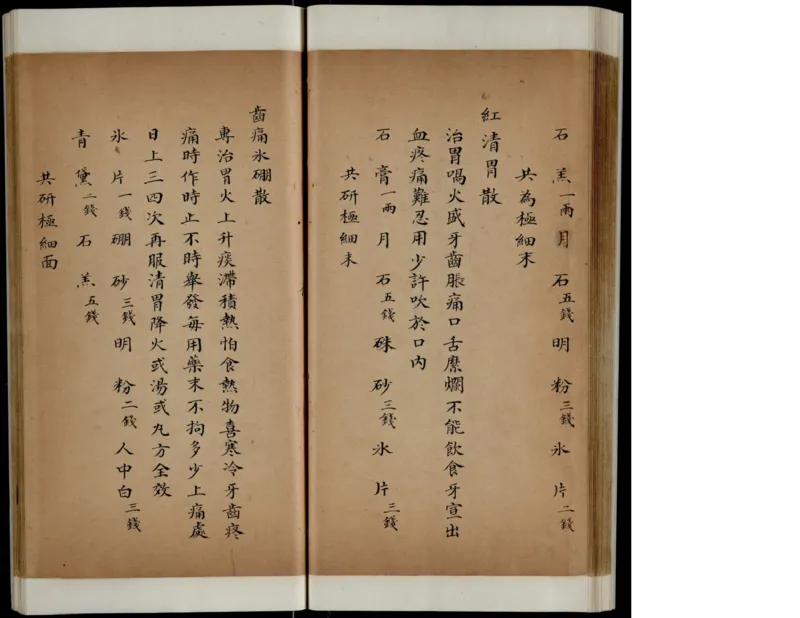 石羔一兩月石五錢明粉三錢氷片二錢
共為極細末
紅清胃散
治胃喝火盛牙齒脹痛口舌縻爛不能飲食牙宣出
血疼痛難忍用少許吹於口內
石膏一兩月石五錢硃砂三錢氷片三錢
共研極細末
齒痛氷硼散
專治胃火上升痰滯積熱怕食熱物喜寒冷牙齒疼
痛時作時止不時舉發每用藥末不拘多少上痛處
日上三四次再服清胃降火或湯或丸方全效
氷片一錢硼砂三錢明粉二錢人中白三錢
青黛二錢石羔五錢
共研極細面